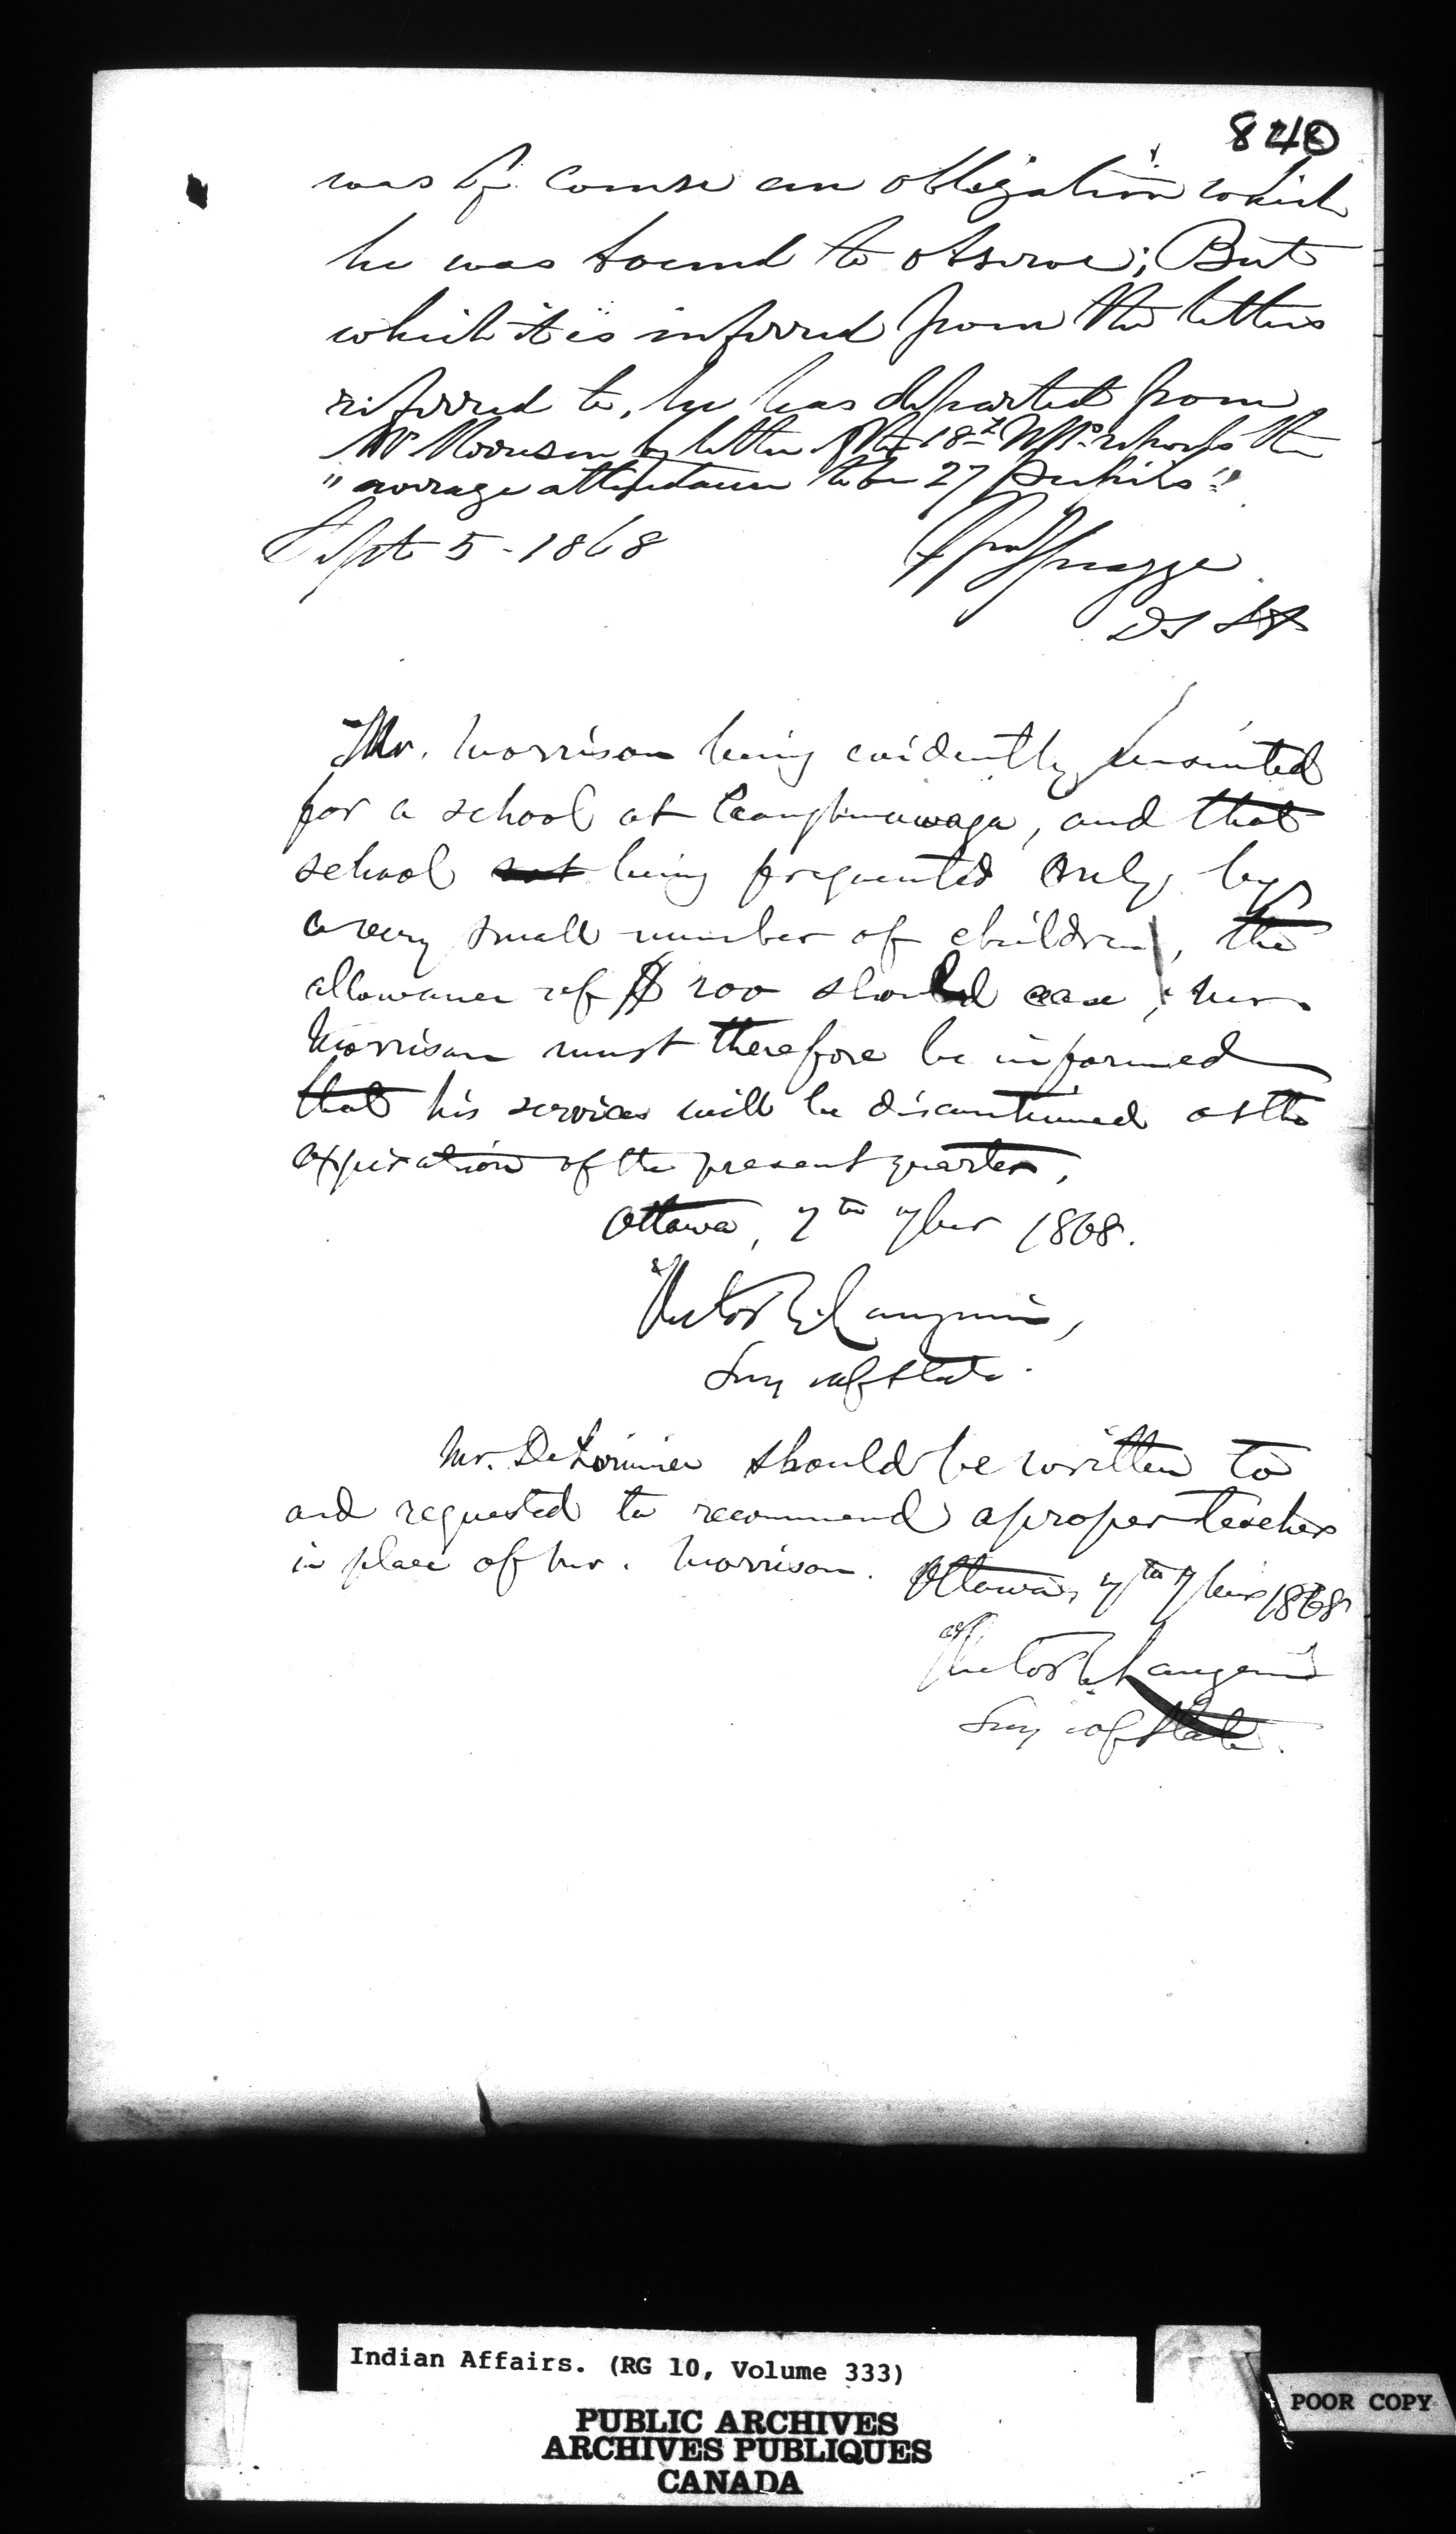 840
was of course an obligation which
he was bound to observe; But
which it is inferred from the letters
referred to, he has departed from
Mr Morrison by letter of the 18th reports the
"average attendance to be 27 pupils".
Sept 5 - 1868
Spragge
DS IA
Mr. Morrison being evidently unsuited
for a school at Caughnawaga, and that
school not being frequented only by
a very small number of children, the
allowance of $200 should cease; Mr.
Morrison must therefore be informed
that his services will be discontinued at the
expiration of the present quarter,
Ottawa, 7th 7ber 1868.
Hector L. Langevin,
Secy of State.
Mr. DeLorimier should be written to
and requested to recommend a proper teacher
in place of Mr. Morrison. Ottawa, 7th 7ber 1868
Hector L. Langevin
Secy of State.
Indian Affairs. (RG 10, Volume 333)
PUBLIC ARCHIVES
ARCHIVES PUBLIQUES
CANADA
POOR COPY